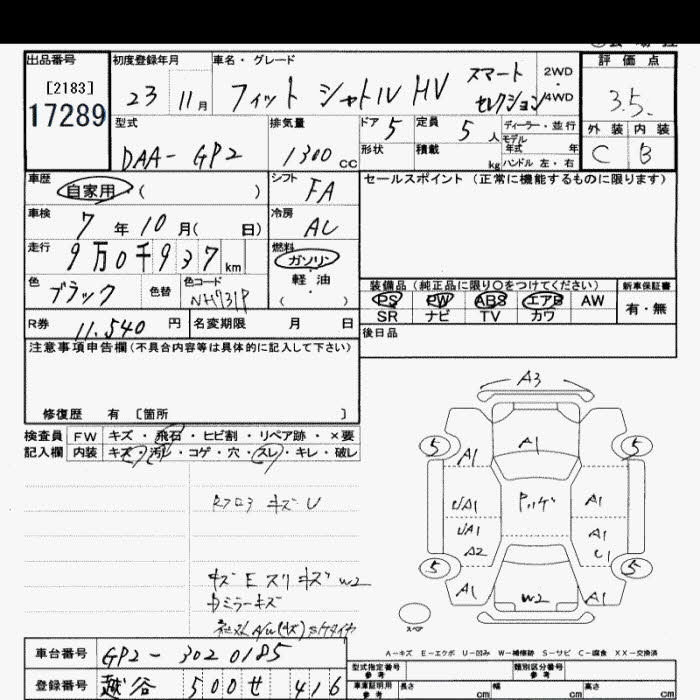 出品番号
[2183]
17289
初度登録年月
23 11月
車名・グレード
フィット シャトル HV スマート セレクション
2WD
4WD
評価点
3.5.
外装 内装
C B
型式
DAA-GP2
排気量
1300 CC
ドア 5
定員 5人
ディーラー・並行
モデル年式 年
形状
積載 kg
ハンドル 左・右
車歴
自家用・( )
シフト
FA
セールスポイント (正常に機能するものに限ります)
車検
7年10月( 日)
冷房
AC
走行
9万0千937km
燃料
ガソリン
軽・油
( )
色
ブラック
色替
色コード
NH731P
装備品(純正品に限り○をつけてください)
新車保証書
PS PW ABS エアB AW
有・無
SR ナビ TV カワ
R券 11.540円
名変期限 月 日
後日品
注意事項申告欄(不具合内容等は具体的に記入して下さい)
修復歴 有 [箇所 ]
検査員記入欄
FW キズ・飛石・ヒビ割・リペア跡・×要
内装 キズ・汚れ・コゲ・穴・スレ・キレ・破レ
キズ U
キズ E スリキズ W2
ミラーキズ
A3
5 5
A1 A1
UA1 A1
UA1 A1
A2 U1
5 5
A1 W2 A1
スペア
A-キズ E-エクボ U-凹み W-補修跡 S-サビ C-腐食 XX-交換済
車台番号 GP2-3020185
型式指定番号
参考
類別区分番号
参考
登録番号 越谷 500 せ 416
車庫証明用
参考
長さ cm 幅 cm 高さ cm